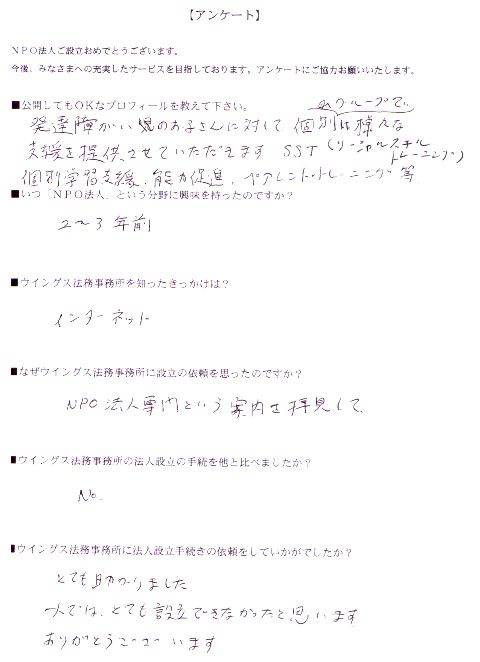 【アンケート】
NPO法人ご設立おめでとうございます。
今後、みなさまへの充実したサービスを目指しております。アンケートにご協力お願いいたします。
■公開してもOKなプロフィールを教えて下さい。
グループで
発達障がい児のお子さんに対して個別は様々な
支援を提供させていただきます SST (ソーシャルスキル
トレーニング)
個別学習支援、能力促進、ペアレントトレーニング等
■いつ「NPO法人」という分野に興味を持ったのですか?
2〜3年前
■ウイングス法務事務所を知ったきっかけは?
インターネット
■なぜウイングス法務事務所に設立の依頼を思ったのですか?
NPO法人専門という案内を拝見して
■ウイングス法務事務所の法人設立の手続を他と比べましたか?
No.
■ウイングス法務事務所に法人設立手続きの依頼をしていかがでしたか?
とても助かりました
一人では、とても設立できなかったと思います
ありがとうございます